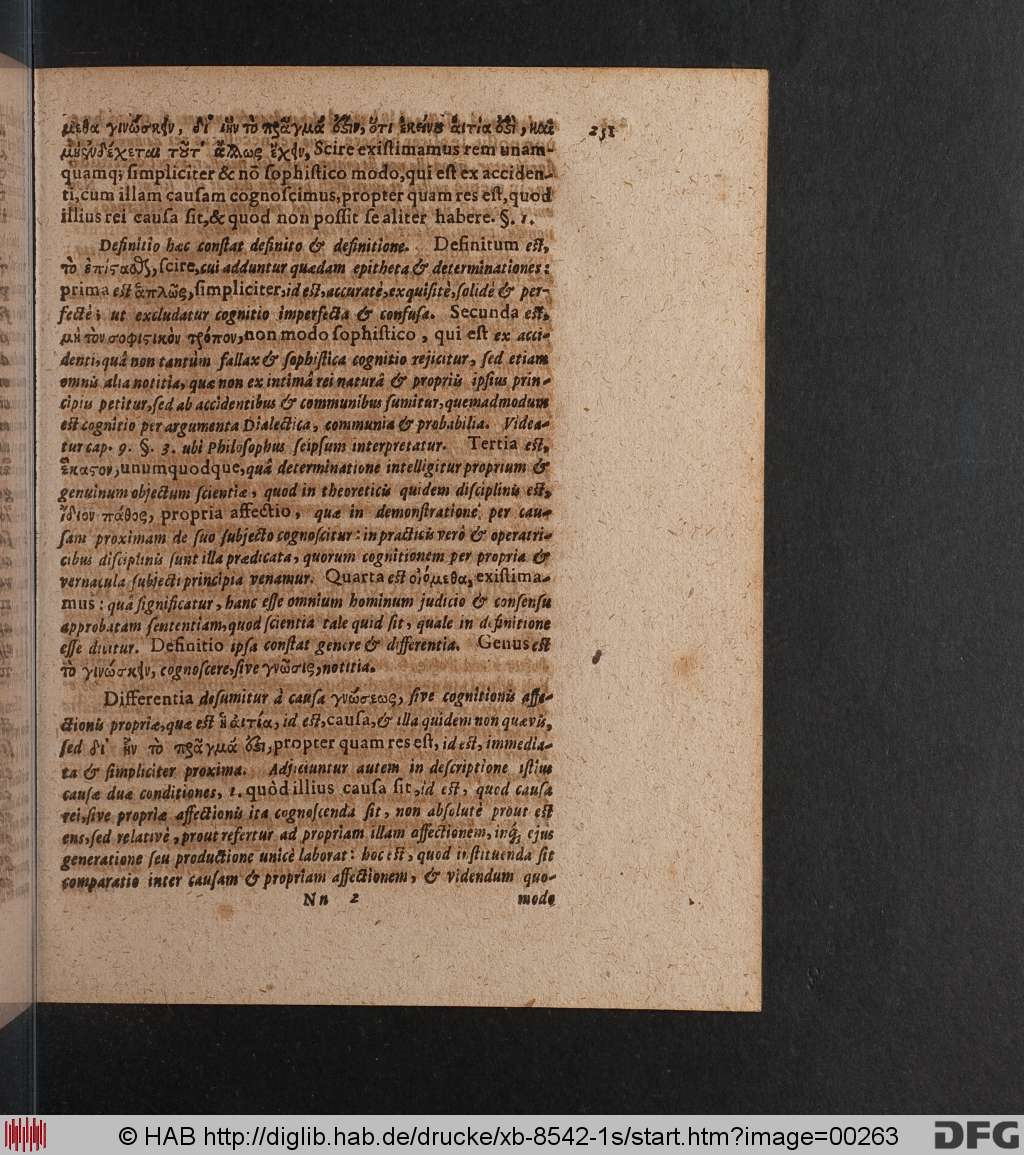 μεθα γινώσκειν, δι' ἣν τὸ πρᾶγμά ἐστιν, ὅτι ἐκείνου ἀιτία ἐστὶ, καὶ
μὴ ἐνδέχεται τοῦτ' ἄλλως ἔχειν, Scire existimamus rem unam-
quamq; simpliciter & nō sophistico modo, qui est ex acciden-
ti, cum illam causam cognoscimus, propter quam res est, quod
illius rei causa sit, & quod non possit se aliter habere. §. 1.
Definitio hæc constat definito & definitione. Definitum est,
τὸ ἐπίςαθζ, scire, cui adduntur quædam epitheta & determinationes:
prima est ἁπλῶς, simpliciter, id est, accuratè, exquisitè, solidè & per-
fectè; ut excludatur cognitio imperfecta & confusa. Secunda est,
μὴ τὸν σοφιςικὸν τρόπον, non modo sophistico, qui est ex acci-
denti, quâ non tantùm fallax & sophistica cognitio rejicitur, sed etiam
omnis alia notitia, quæ non ex intimâ rei naturâ & propriis ipsius prin-
cipiis petitur, sed ab accidentibus & communibus sumitur, quemadmodum
est cognitio per argumenta Dialectica, communia & probabilia. Videa-
tur cap. 9. §. 3. ubi Philosophus seipsum interpretatur. Tertia est,
ἕκαςον, unumquodque, quâ determinatione intelligitur proprium &
genuinum objectum scientiæ, quod in theoreticis quidem disciplinis est,
ἴδιον πάθος, propria affectio, quæ in demonstratione per cau-
sam proximam de suo subjecto cognoscitur: in practicis verò & operatri-
cibus disciplinis sunt illa prædicata, quorum cognitionem per propria &
vernacula subjecti principia venamur. Quarta est οἰόμεθα, existima-
mus: quâ significatur, hanc esse omnium hominum judicio & consensu
approbatam sententiam, quod scientia tale quid sit, quale in definitione
esse dicitur. Definitio ipsa constat genere & differentia. Genus est
τὸ γινώσκειν, cognoscere, sive γνῶσις, notitia.
Differentia desumitur à causa γνώσεως, sive cognitionis affe-
ctionis propriæ, quæ est ἡ ἀιτία, id est, causa, & illa quidem non quævis,
sed δι' ἣν τὸ πρᾶγμά ἐστι, propter quam res est, id est, immedia-
ta & simpliciter proxima. Adjiciuntur autem in descriptione istius
causæ duæ conditiones, 1. quòd illius causa sit, id est, quod causa
rei, sive propriæ affectionis ita cognoscenda sit, non absolutè prout est
ens, sed relativè, prout refertur ad propriam illam affectionem, inq; ejus
generatione seu productione unicè laborat: hoc est, quod instituenda sit
comparatio inter causam & propriam affectionem, & videndum quo-
Nn 2 modo
251
© HAB http://diglib.hab.de/drucke/xb-8542-1s/start.htm?image=00263
DFG